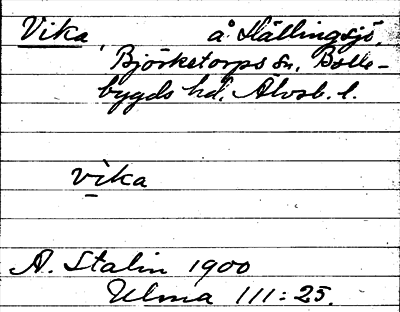 Vika å. Hällingsjö,
Björketorps sn, Bolle-
bygds hd. Älvsb. l.
vìka
A. Stalin 1900
Ulma 111:25.